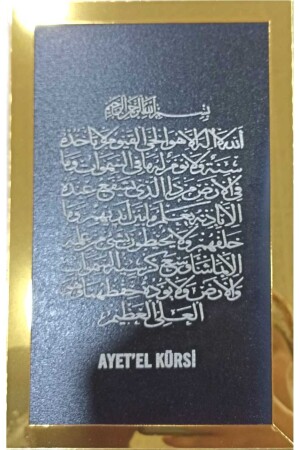 بسم الله الرحمن الرحيم
الله لا إله إلا هو الحي القيوم لا تأخذه
سنة ولا نوم له ما في السموات وما
في الأرض من ذا الذي يشفع عنده
إلا بإذنه يعلم ما بين أيديهم وما
خلفهم ولا يحيطون بشيء من علمه
إلا بما شاء وسع كرسيه السموات
والأرض ولا يؤده حفظهما وهو
العلي العظيم
AYET'EL KÜRSİ